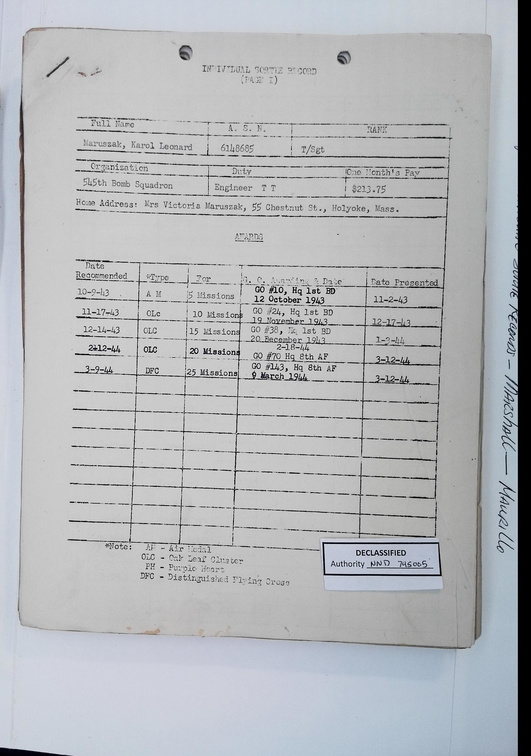 INDIVIDUAL SORTIE RECORD
(PART I)
Full Name A. S. N. RANK
Maruszak, Karol Leonard 6148685 T/Sgt
Organization Duty One Month's Pay
545th Bomb Squadron Engineer T T $213.75
Home Address: Mrs Victoria Maruszak, 55 Chestnut St., Holyoke, Mass.
AWARDS
Date Recommended *Type For G. O. Awarding & Date Date Presented
10-9-43 A M 5 Missions GO #10, Hq 1st BD 12 October 1943 11-2-43
11-17-43 OLc 10 Missions GO #24, Hq 1st BD 19 November 1943 12-17-43
12-14-43 OLC 15 Missions GO #38, Hq 1st BD 20 December 1943
2-12-44 OLC 20 Missions 2-18-44 GO #70 Hq 8th AF 3-12-44
3-9-44 DFC 25 Missions GO #143, Hq 8th AF 9 March 1944 3-12-44
*Note: AM - Air Medal
OLC - Oak Leaf Cluster
PH - Purple Heart
DFC - Distinguished Flying Cross
DECLASSIFIED
Authority NND 745005
Records - Marshall - Maurillo